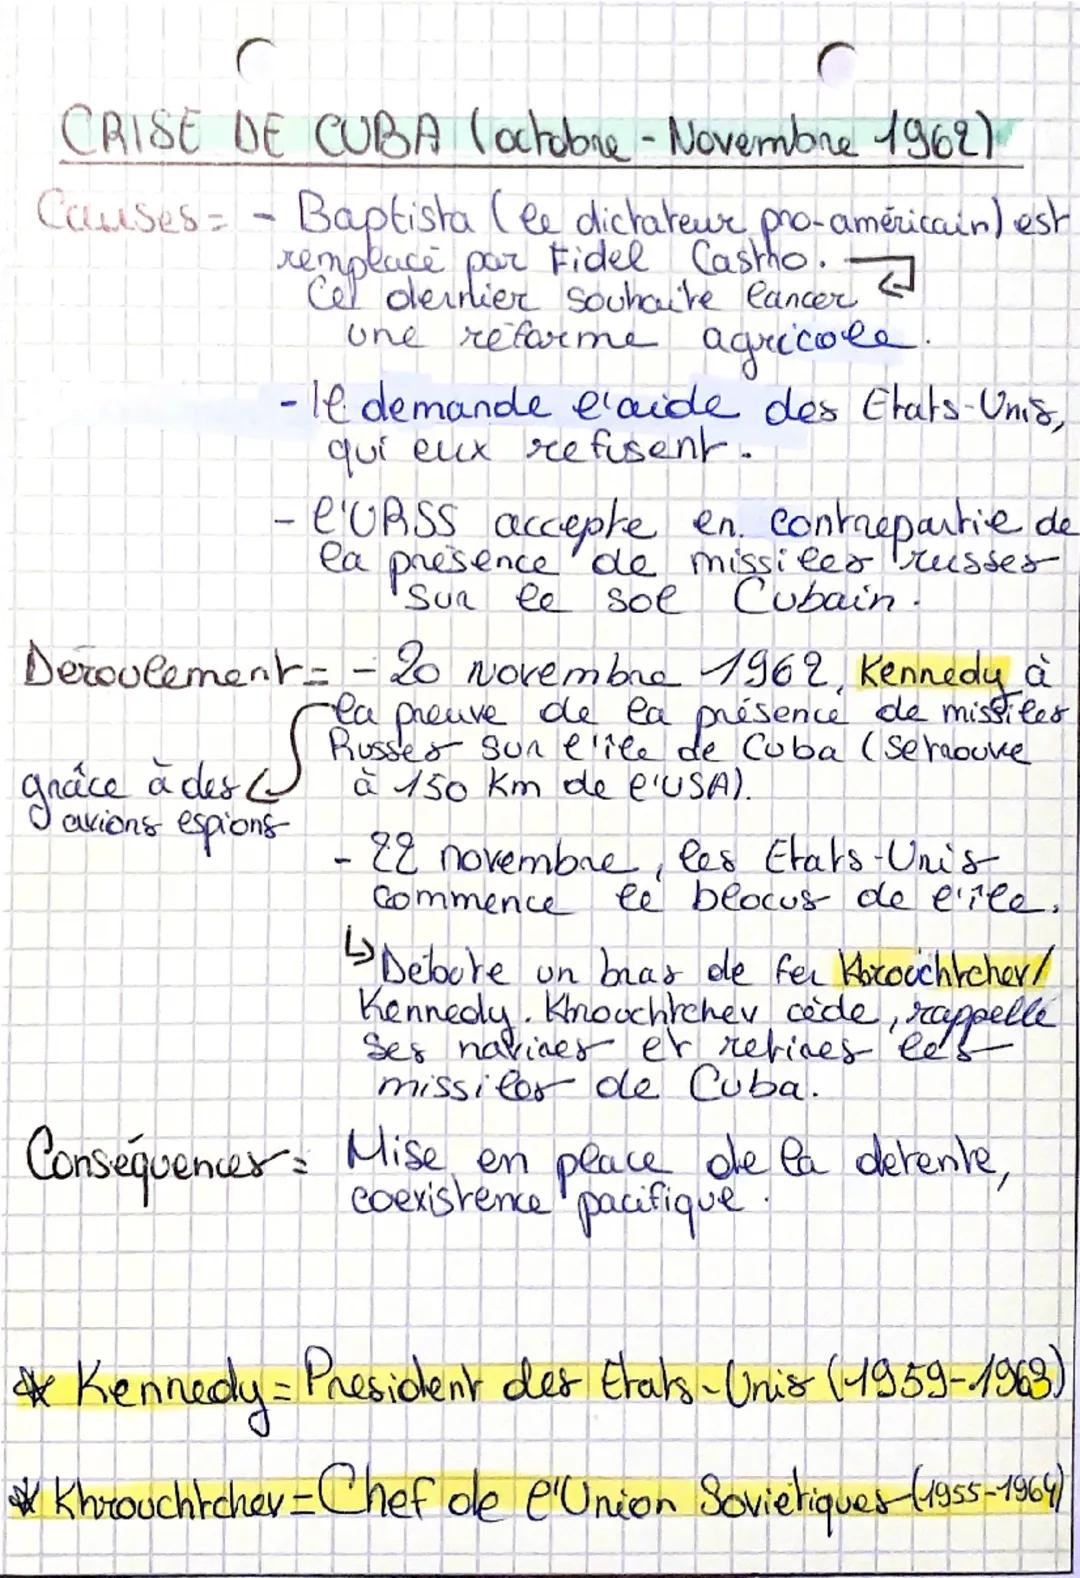 CRISE DE CUBA (octobre - Novembre 1962)
Causes = - Baptista (le dictateur pro-américain) est
remplacé par Fidel Castro.
Cel dernier souhaite lancer
une réforme agricole.
- Il demande l'aide des Etats-Unis,
qui eux refusent.
- l'URSS accepte en contrepartie de
la présence de missiles russes
sur le sol Cubain.
Deroulement = - 20 novembre 1962, Kennedy à
la preuve de la présence de missiles
Russes sur l'île de Cuba (se trouve
à 150 Km de l'USA).
grâce à des
avions espions
- 22 novembre, les Etats-Unis
commence le blocus de l'île.
↳ Debute un bras de fer Khrouchtchev/
Kennedy. Khrouchtchev cède, rappelle
ses navires et retires les
missiles de Cuba.
Conséquences = Mise en place de la detente,
coexistence pacifique.
* Kennedy = President des Etats-Unis (1959-1963)
* Khrouchtchev = Chef de l'Union Soviétiques (1955-1964)